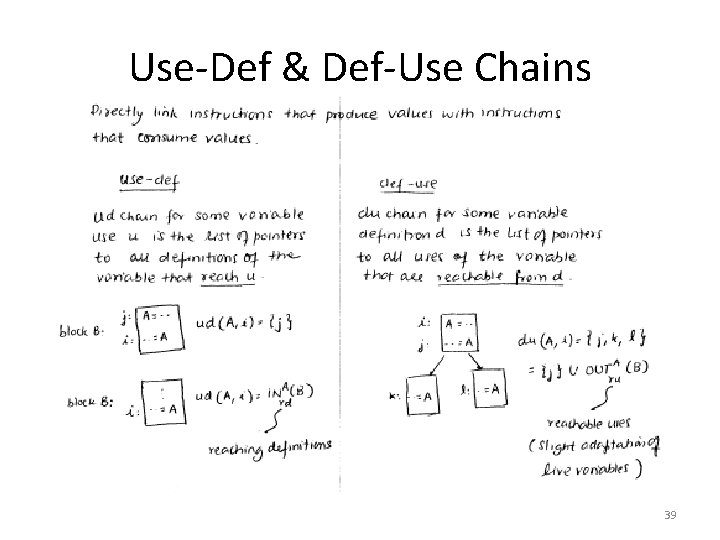 Use-Def & Def-Use Chains
Directly link instructions that produce values with instructions
that consume values.
use-def
ud chain for some variable
use u is the list of pointers
to all definitions of the
variable that reach u.
block B:
j: A = ...
i: ... = A
ud(A, i) = {j}
block B:
⋮
i: ... = A
ud(A, i) = IN^A_rd(B)
reaching definitions
def-use
du chain for some variable
definition d is the list of pointers
to all uses of the variable
that are reachable from d.
i: A = ...
j: ... = A
k: ... = A
l: ... = A
du(A, i) = {j, k, l}
= {j} ∪ OUT^A_ru(B)
reachable uses
(slight adaptation of
live variables)
39